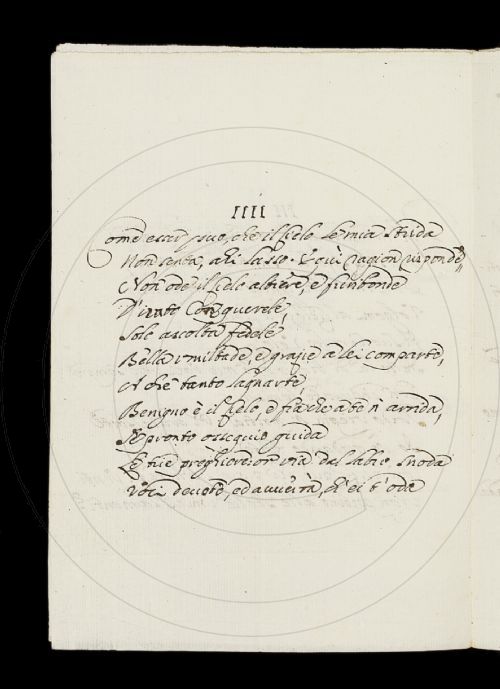 IIII
Come esser puo, che il Cielo le mie strida
Non senta, ahi lasso. E qui ragion risponde,
Non ode il Cielo altiere, e furibonde
D'irato Cor querele,
Solo ascolta fedele
Bella umiltade, e grazie a lei comparte,
A che tanto lagnarte,
Benigno è il Cielo, e fia che a te n' arrida,
Se pronto ossequio guida
Le tue preghiere or via dal labio snoda
Voci devote, ed avverrà, ch' ei t' oda